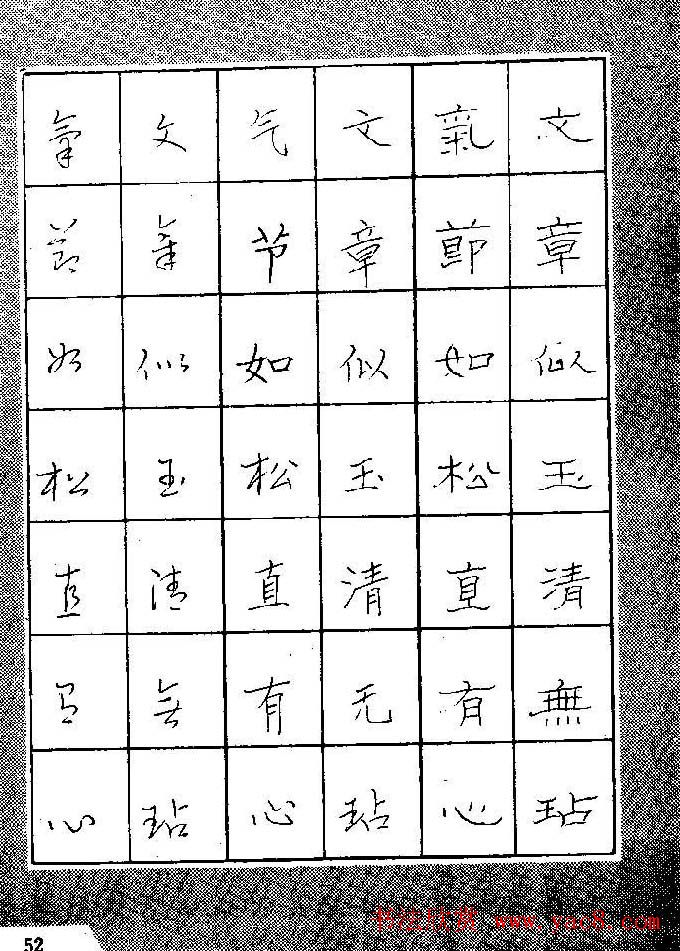 文章似玉清無玷
氣節如松直有心
文章似玉清无玷
气节如松直有心
文章似玉清無玷
氣節如松直有心
52
书法欣赏 www.yac8.com